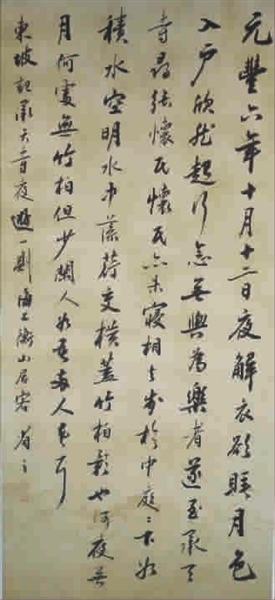 元豐六年十月十二日夜解衣欲睡月色
入戶欣然起行念無與為樂者遂至承天
寺尋張懷民懷民亦未寢相與步於中庭〻下如
積水空明水中藻荇交橫蓋竹柏影也何夜無
月何處無竹柏但少閑人如吾兩人者耳
東坡記承天寺夜遊一則 海上衡山居客